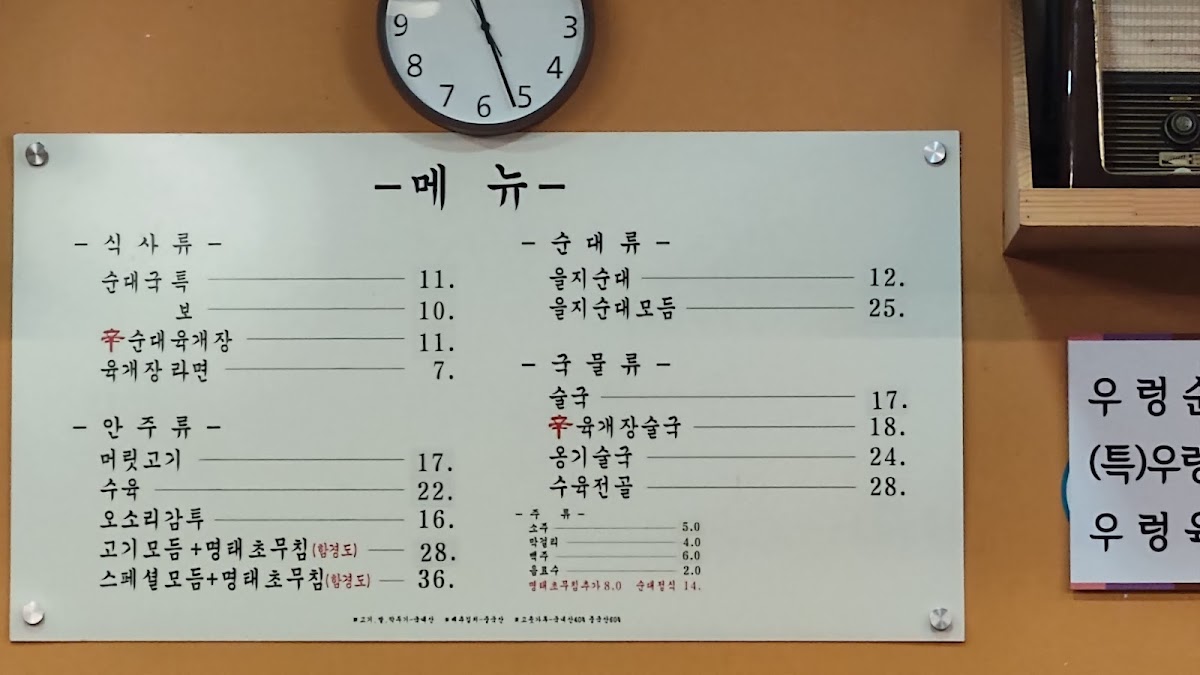 9
3
8
4
7
6
5
-메 뉴-
- 식 사 류 -
순대국 특 11.
보 10.
辛순대육개장 11.
육개장라면 7.
- 안 주 류 -
머릿고기 17.
수육 22.
오소리감투 16.
고기모듬+명태초무침(함경도) 28.
스페셜모듬+명태초무침(함경도) 36.
- 순 대 류 -
을지순대 12.
을지순대모듬 25.
- 국 물 류 -
술국 17.
辛육개장술국 18.
옹기술국 24.
수육전골 28.
- 주 류 -
소주 5.0
막걸리 4.0
맥주 6.0
음료수 2.0
명태초무침추가 8.0 순대정식 14.
■고기,쌀,깍두기-국내산 ■배추김치-중국산 ■고춧가루-국내산40% 중국산60%
우렁순
(특)우렁
우렁육